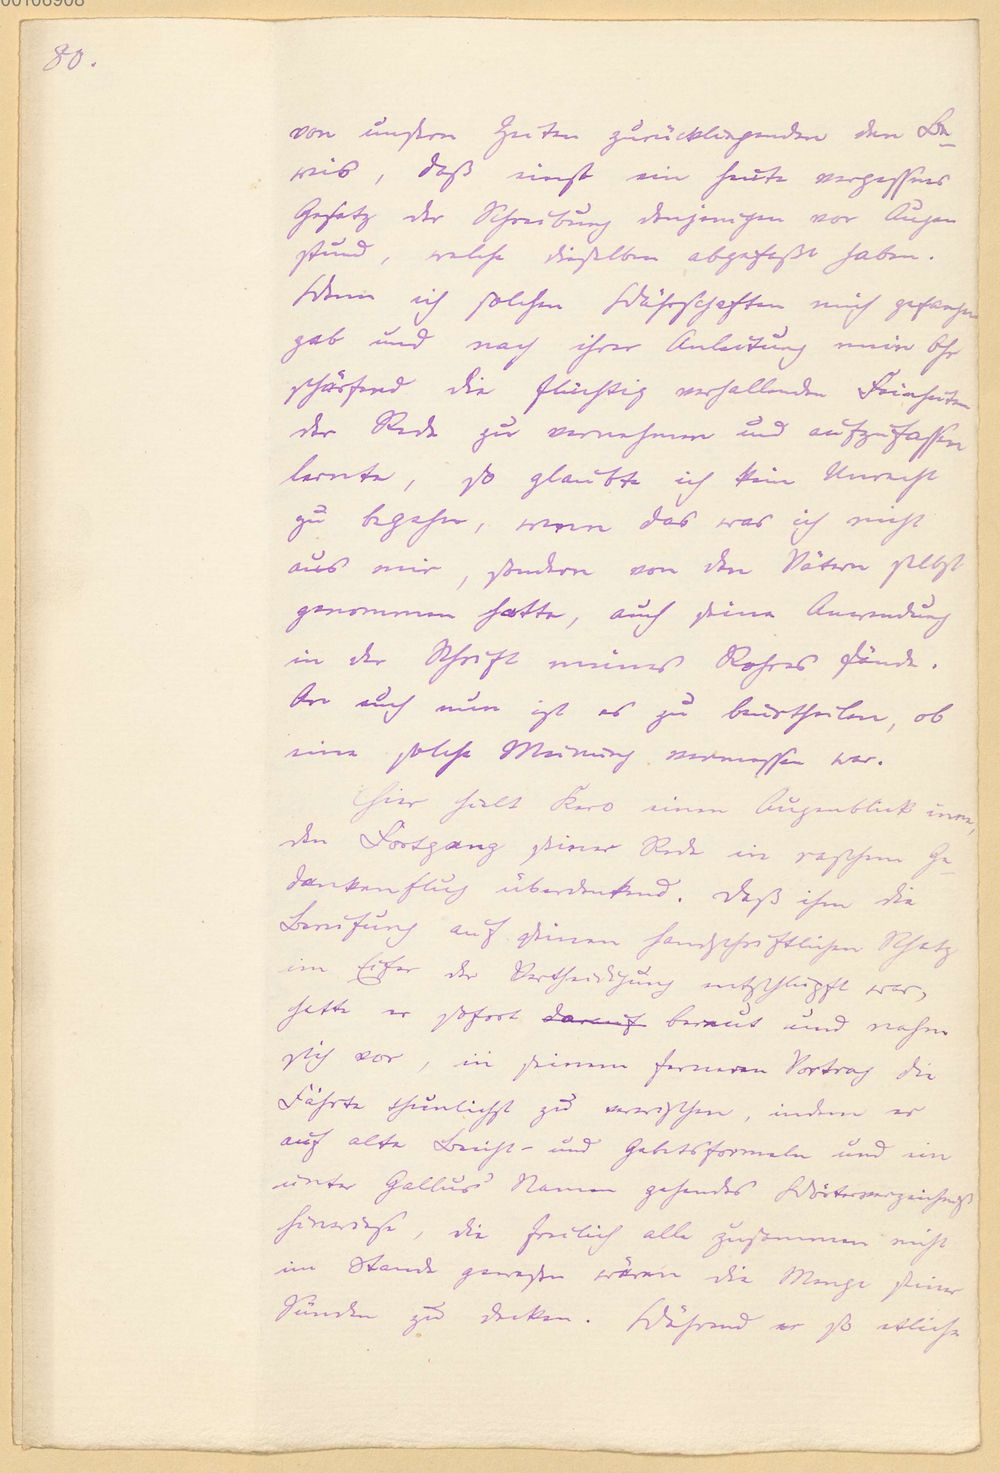 80.
von unsern Zeiten zurückliegenden den Be-
weis, daß einst ein heute vergessnes
Gesetz der Schreibung denjenigen vor Augen
stund, welche dieselben abgefaßt haben.
Wenn ich solchen Währschaften mich gefangen
gab und nach ihrer Anleitung mein Ohr
schärfend die flüchtig verhallenden Feinheiten
der Rede zu vernehmen und aufzufassen
lernte, so glaubte ich kein Unrecht
zu begehn, wenn das was ich nicht
aus mir, sondern von den Vätern selbst
genommen hatte, auch seine Anwendung
in der Schrift meines Rohres fände.
An euch nun ist es zu beurtheilen, ob
eine solche Meinung vermessen war.
Hier hielt Kero einen Augenblick inne,
den Fortgang seiner Rede in raschem Ge-
dankenflug überdenkend. Daß ihm die
Berufung auf seinen handschriftlichen Schatz
im Eifer der Vertheidigung entschlüpft war,
hatte er sofort darauf bereut und nahm
sich vor, in seinem ferneren Vortrag die
Fährte thunlichst zu verwischen, indem er
auf alte Beicht- und Gebetsformeln und ein
unter Gallus' Namen gehendes Wörterverzeichniß
hinwiese, die freilich alle zusammen nicht
im Stande gewesen wären die Menge seiner
Sünden zu decken. Während er so etliche